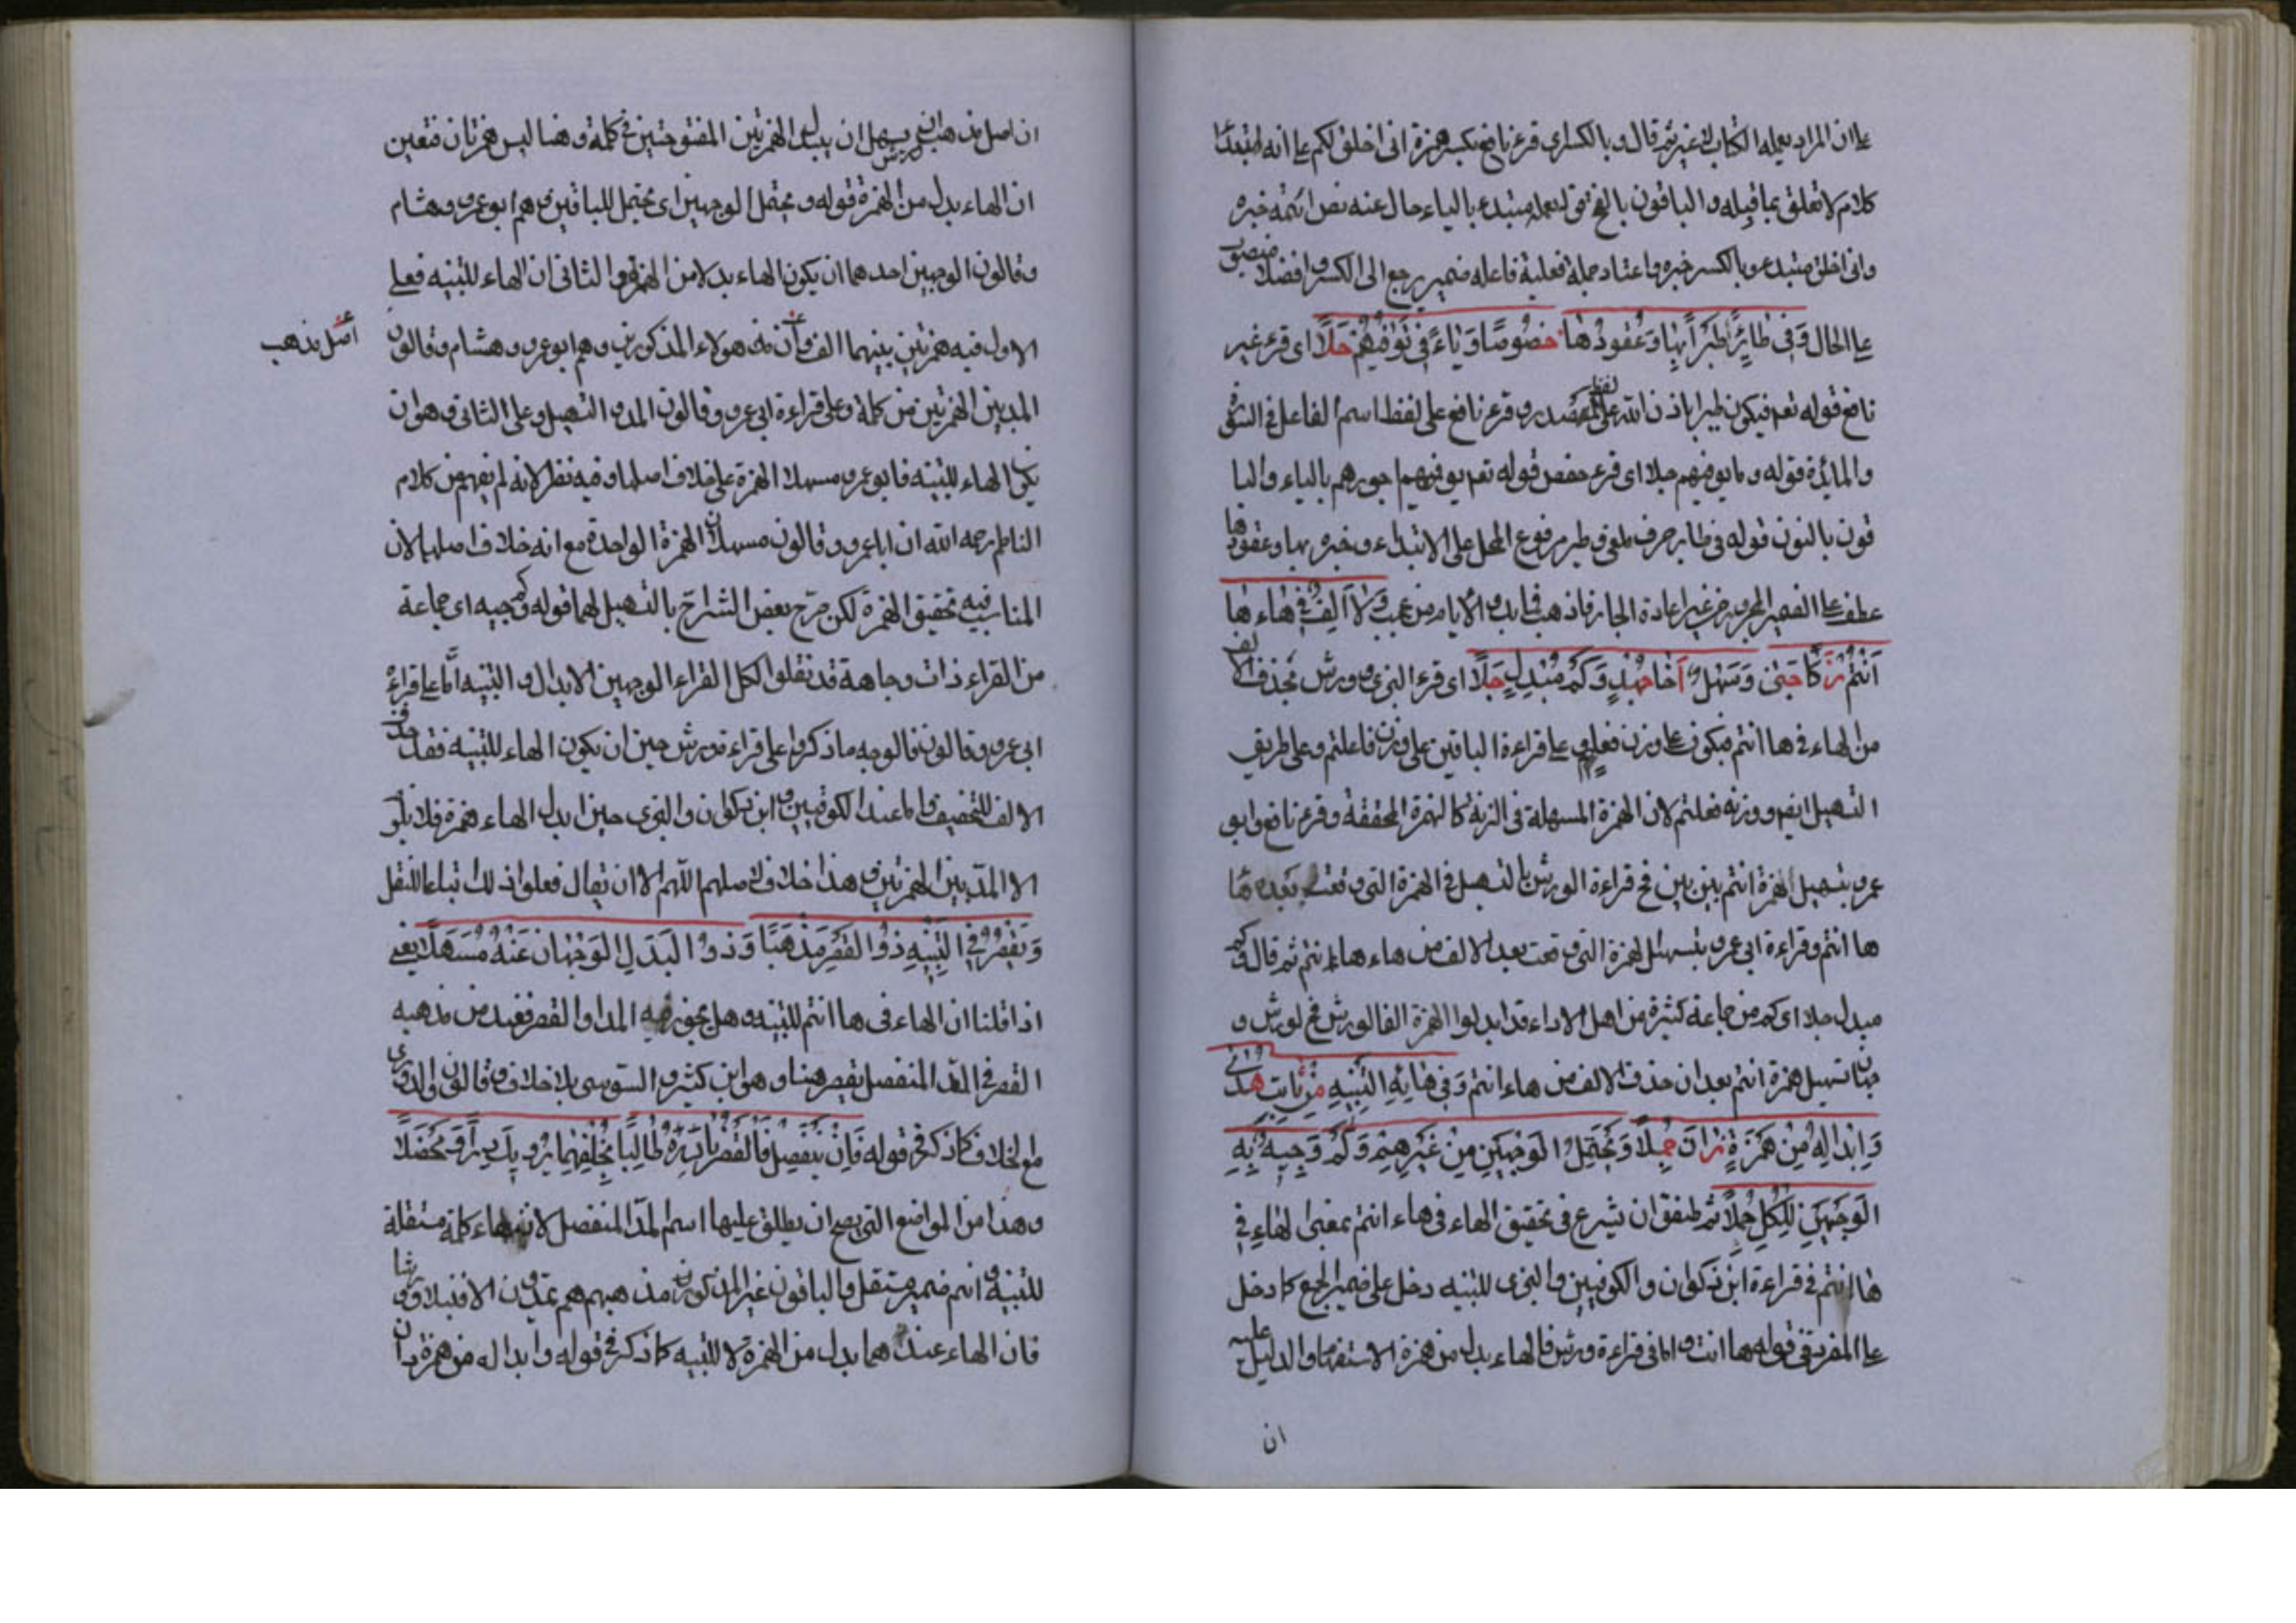 على ان المراد يعلمه الكتاب لا غير ثم قال وبالكسر اى قرء نافع بكسر همزة انى اخلق لكم على انه ابتداء
كلام لا تعلق بما قبله والباقون بالفتح قوله يعلمه مبتدء بالياء حال عنه نص ائمه خبره
وانى اخلق مبتدء وبالكسر خبره واعتاد جملة فعلية فاعله ضمير يرجع الى الكسر وافصلا منصوب
على الحال وَفِى طَائِرًا طَيْرًا بِهَا وَعُقُودُهَا خُصُوصًا وَيَاءٌ فِى نُوَفِّيهُمْ عَلَا اى قرء غير
نافع قوله تعم فيكون طيرا باذن الله على لفظ المصدر وقرء نافع على لفظ اسم الفاعل فى السورة
والمائدة قوله ويا يوفيهم علا اى قرء حفص قوله تعم يوفيهم اجورهم بالياء والبا
قون بالنون قوله فى طاير حرف ملغى وطير مرفوع المحل على الابتداء وخبره بها وعقودها
عطف على الضمير المجرور من غير اعادة الجار فاذهب فما بك والايام من عجب وَلَا اَلِفٌ فِى هَاءِ هَا
اَنْتُمْ زَكَا جَنًى وَسَهِّلْ اَخَا حَمْدٍ وَكَمْ مُبْدِلٍ جَلَا اى قرء البزى وورش بحذف الالف
من الهاء فى ها انتم فيكون على وزن فعلتم وعلى قراءة الباقين على وزن فاعلتم وعلى طريق
التسهيل ايضا ووزنه فعلتم لان الهمزة المسهلة فى الزنة كالهمزة المحققة وقرء نافع وابو
عمرو بتسهيل الهمزة انتم بين بين فح قراءة الورش بالتسهيل فى الهمزة التى وقعت بعده ها
ها انتم وقراءة ابى عمرو بتسهيل الهمزة التى وقعت بعد الالف من هاء ها انتم ثم قال وكم
مبدل جلا اى كم من جماعة كثيرة من اهل الاداء قد ابدلوا الهمزة الفا لورش فح لورش و
جهان تسهيل همزة انتم بعد ان حذف الالف من هاء انتم وَفِى هَائِهِ التَّنْبِيهُ مِنْ ثَابِتٍ هُدًى
وَاِبْدَالُهُ مِنْ هَمْزَةٍ زَانَ جَمَّلَا وَيَحْتَمِلُ الْوَجْهَيْنِ مِنْ غَيْرِهِمْ وَكَمْ وَجِيهٍ بِهِ
الْوَجْهَيْنِ لِلْكُلِّ حَمَّلَا ثم طفق ان يشرع فى تحقيق الهاء فى هاء انتم بمعنى الهاء فى
ها انتم فى قراءة ابن ذكوان والكوفيين والبزى للتنبيه دخل على ضمير الجمع كما دخل
على المفرد فى قوله ها انت واما فى قراءة ورش فالهاء بدل من همزة الاستفهام والدليل عليه
ان
ان اصل مذهب ورش ان يبدل الهمزتين المفتوحتين فى كلمة وهنا ليس همزتان فتعين
ان الهاء بدل من الهمزة قوله ويحتمل الوجهين اى يحتمل للباقين وهم ابو عمرو وهشام
وقالون الوجهين احدهما ان يكون الهاء بدلا من الهمزة والثانى ان الهاء للتنبيه فعلى
الاول فيه همزتين بينهما الف وان هولاء المذكورين وهم ابو عمرو وهشام وقالون
اصل مذهب
المد بين الهمزتين من كلمة وعلى قراءة ابى عمرو وقالون المد والتسهيل وعلى الثانى وهو ان
يكون الهاء للتنبيه فابو عمرو مسهلا الهمزة على خلاف اصلها وفيه نظر لانه لم يفهم من كلام
الناظم رحمه الله ان ابا عمرو وقالون مسهلان الهمزة الواحدة مع انه خلاف اصلهما لان
المناسب فيه تحقيق الهمزة لكن صرح بعض الشراح بالتسهيل لهما قوله وكم وجيه اى جماعة
من القراء ذات وجاهة قد نقلوا لكل القراء الوجهين الابدال والتنبيه اما على قراءة
ابى عمرو وقالون فالوجه ما ذكر واما على قراءة ورش حين ان يكون الهاء للتنبيه فقد حذف
الالف للتخفيف واما عند الكوفيين وابن ذكوان والبزى حين ابدل الهاء همزة فلا يلو
الا المد بين الهمزتين وهذا خلاف لاصلهم اللهم الا ان يقال فعلوا ذلك اتباعا للنقل
وَيَقْصُرُ فِى التَّنْبِيهِ ذُو الْقَصْرِ مَذْهَبًا وَذُو الْبَدَلِ الْوَجْهَانِ عَنْهُ مُسَهِّلَا يعنى
اذا قلنا ان الهاء فى ها انتم للتنبيه وهل يجوز فيه المد او القصر فعند من مذهبه
القصر فى المد المنفصل يقصر هنا وهو ابن كثير والسوسى بلا خلاف وقالون والدورى
مع الخلاف كما ذكر فى قوله فَاِنْ يَنْفَصِلْ فَالْقَصْرَ بَادِرْهُ طَالِبًا بِخُلْفِهِمَا يُرْوِيكَ دَرًّا وَمُخْضَلَا
وهذا من المواضع التى يصح ان يطلق عليها اسم المد المنفصل لانه هاء كلمة مستقلة
للتنبيه و انتم ضمير مستقل والباقون غير المذكورين مذهبهم هم يمدون الا قنبلا وورشا
فان الهاء عندهما بدل من الهمزة لا للتنبيه كما ذكر فى قوله وابداله من همزة زان